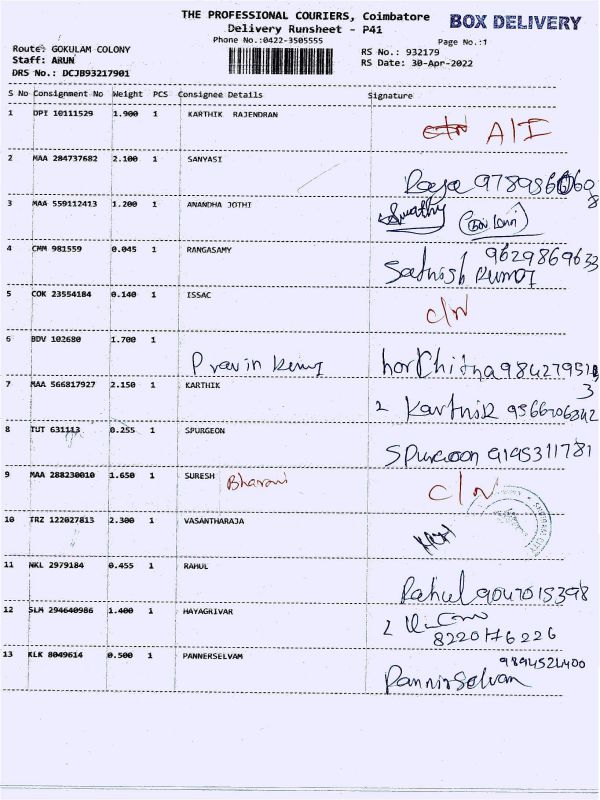 THE PROFESSIONAL COURIERS, Coimbatore
BOX DELIVERY
Delivery Runsheet - P41
Phone No.:0422-3505555
Page No.:1
Route: GOKULAM COLONY
RS No.: 932179
Staff: ARUN
RS Date: 30-Apr-2022
DRS No.: DCJB93217901
S No Consignment No Weight PCS Consignee Details Signature
1 DPI 10111529 1.900 1 KARTHIK RAJENDRAN A/I
2 MAA 284737682 2.100 1 SANYASI
Raja
3 MAA 559112413 1.200 1 ANANDHA JOTHI Swathy
4 CMM 981559 0.045 1 RANGASAMY 9629869633
Sathish Kumar
5 COK 23554184 0.140 1 ISSAC C/N
6 BDV 102680 1.700 1
Pravin Kumar
7 MAA 566817927 2.150 1 KARTHIK
Karthik 9566706342
8 TUT 631113 0.255 1 SPURGEON
Spurgeon 9195311781
9 MAA 288230010 1.650 1 SURESH Bharani C/N
10 TRZ 122027813 2.300 1 VASANTHARAJA
11 NKL 2979184 0.455 1 RAHUL
Rahul 9047015398
12 SLM 294640986 1.400 1 HAYAGRIVAR
8220176226
13 KLK 8049614 0.500 1 PANNERSELVAM 9894521400
Pannirselvam